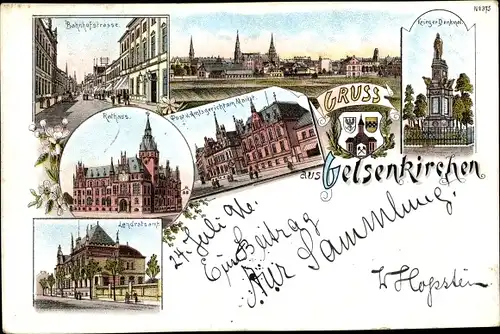 Bahnhofstrasse.
No 875
Krieger-Denkmal
Rathaus.
Post u. Amtsgericht am Markt.
GRUSS
aus Gelsenkirchen
Landratsamt
24 Juli 96.
Ein Beitrag
für Sammlung.